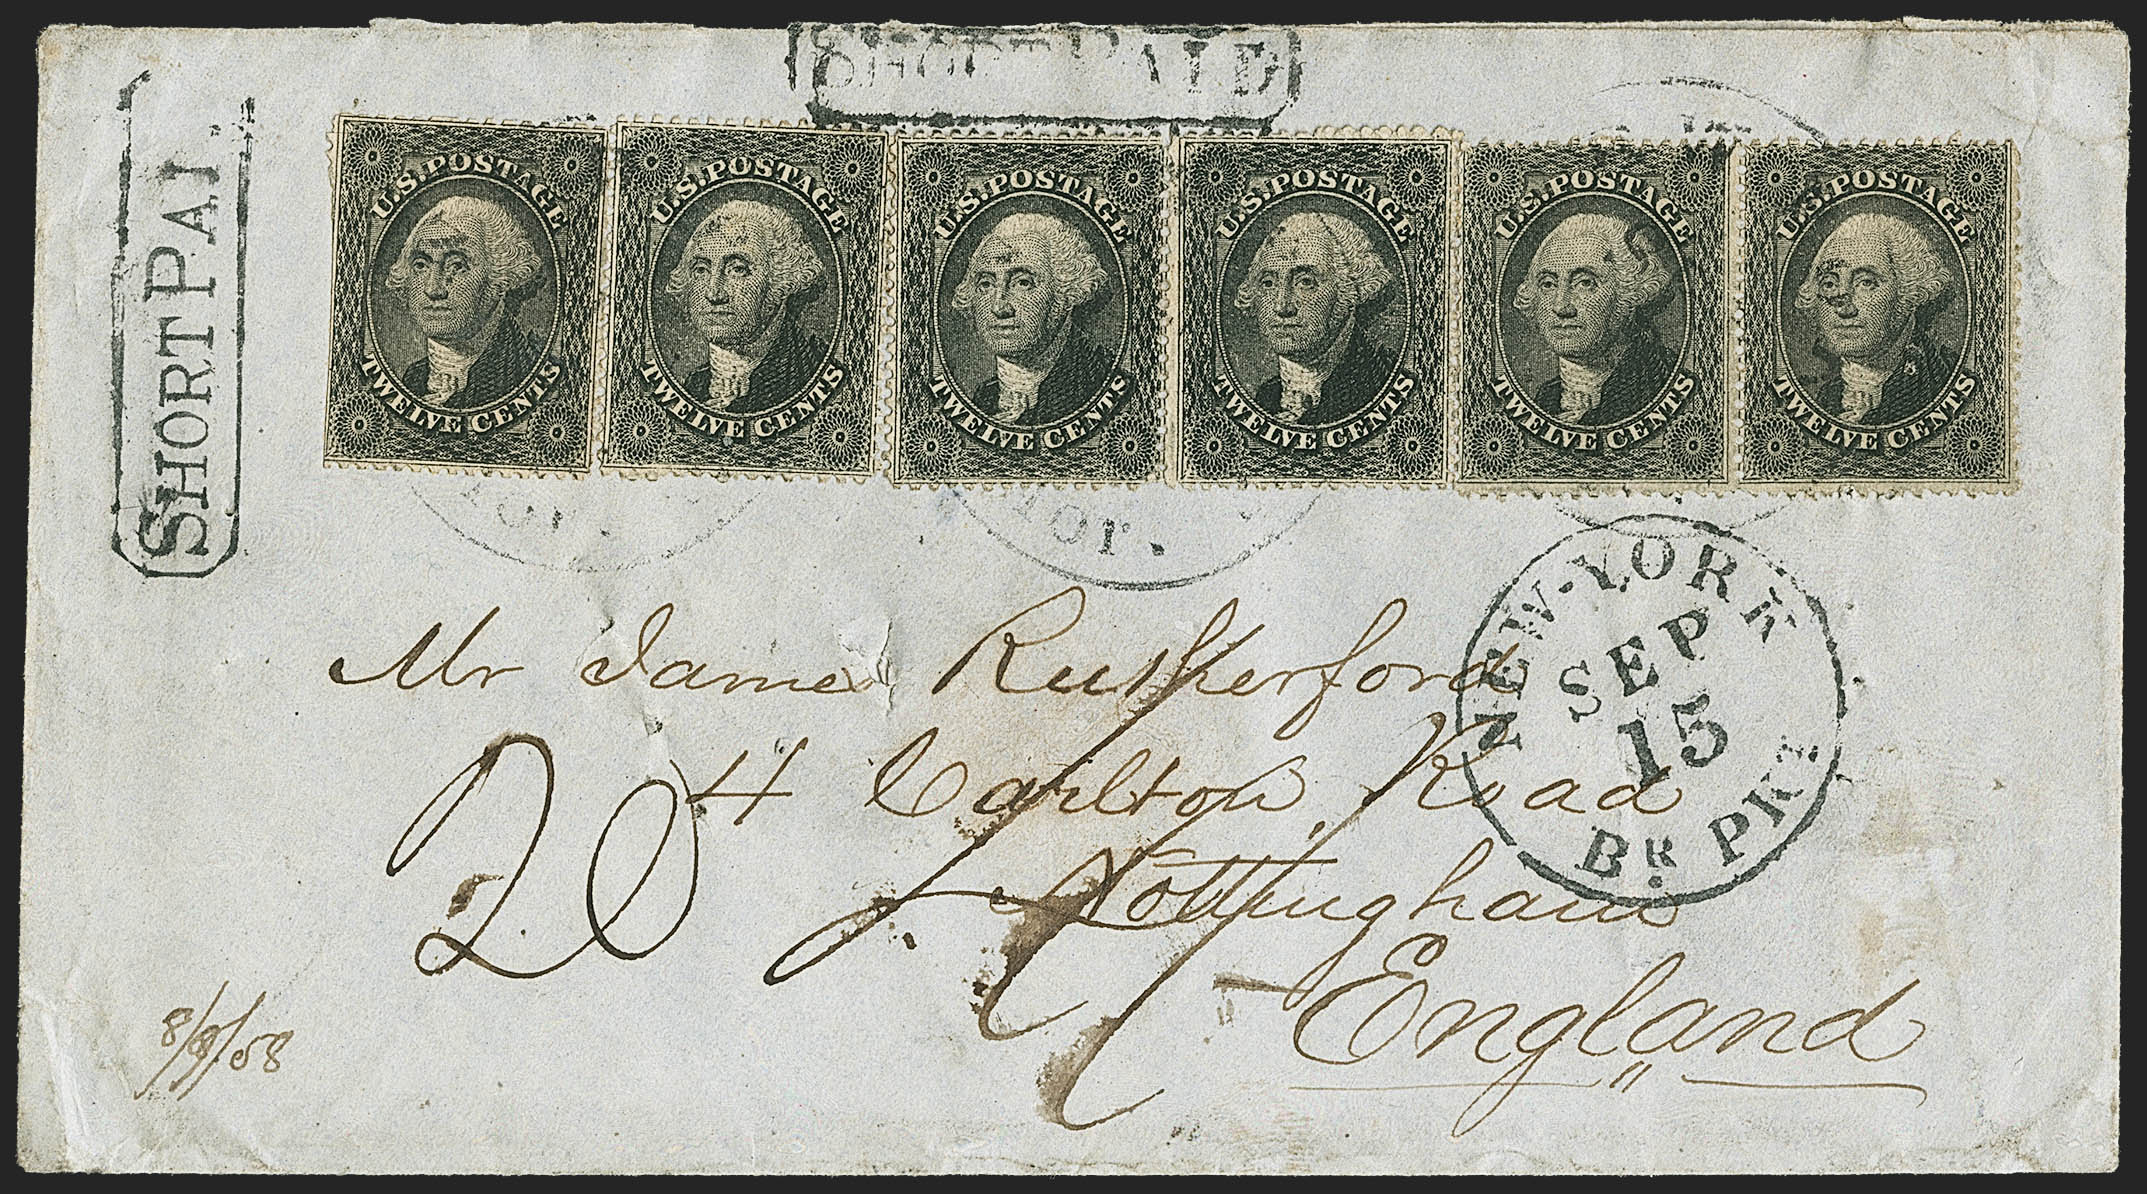 SHORT PAID
SHORT PAI
U.S. POSTAGE
TWELVE CENTS
U.S. POSTAGE
TWELVE CENTS
U.S. POSTAGE
TWELVE CENTS
U.S. POSTAGE
TWELVE CENTS
U.S. POSTAGE
TWELVE CENTS
U.S. POSTAGE
TWELVE CENTS
NEW-YORK
SEP
15
BR. PKT
Mr James Rutherford
4 Carlton Road
Nottingham
England
20
8/9/58